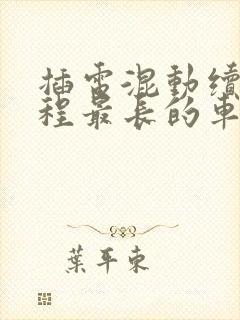 插電混動續
程最長的車
葉平東